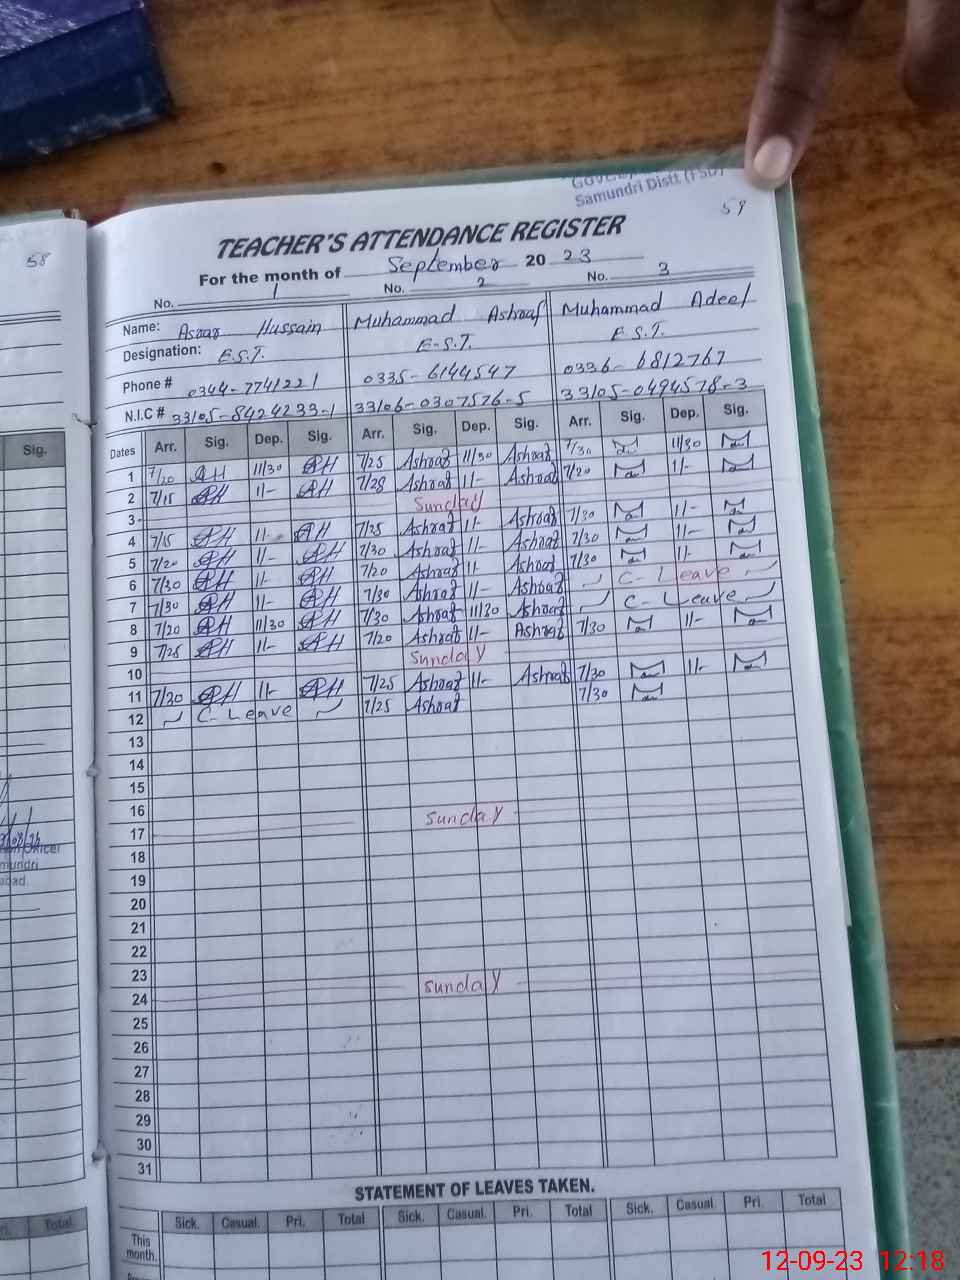 58
Samundri Distt (FSD)
59
TEACHER'S ATTENDANCE REGISTER
For the month of September 20 23
No. 1 No. 2 No. 3
Name: Asrar Hussain Muhammad Ashraf Muhammad Adeel
Designation: E.S.T. E.S.T. E.S.T.
Phone # 0344-7741221 0335-6144547 0336-6812767
N.I.C # 33105-8424233-1 33106-0307576-5 33105-0494578-3
Sig. Dates Arr. Sig. Dep. Sig. Arr. Sig. Dep. Sig. Arr. Sig. Dep. Sig.
1 7/20 AH 11/30 AH 7/25 Ashraf 11/30 Ashraf 7/30 11/30
2 7/15 AH 11/- AH 7/28 Ashraf 11/- Ashraf 7/20 11/-
3 Sunday
4 7/15 AH 11/- AH 7/25 Ashraf 11/- Ashraf 7/30 11/-
5 7/20 AH 11/- AH 7/30 Ashraf 11/- Ashraf 7/30 11/-
6 7/30 AH 11/- AH 7/20 Ashraf 11/- Ashraf 7/20 11/-
7 7/30 AH 11/- AH 7/30 Ashraf 11/- Ashraf C-Leave
8 7/20 AH 11/30 AH 7/30 Ashraf 11/30 Ashraf C-Leave
9 7/25 AH 11/- AH 7/20 Ashraf 11/- Ashraf 7/30 11/-
10 Sunday
11 7/30 AH 11/- AH 7/25 Ashraf 11/- Ashraf 7/30 11/-
12 C-Leave 7/25 Ashraf 7/30
13
14
15
16
17 Sunday
18
19
20
21
22
23
24 Sunday
25
26
27
28
29
30
31
STATEMENT OF LEAVES TAKEN.
Total Sick. Casual. Pri. Total Sick. Casual. Pri. Total Sick. Casual. Pri. Total
This
month.
12-09-23 12:18